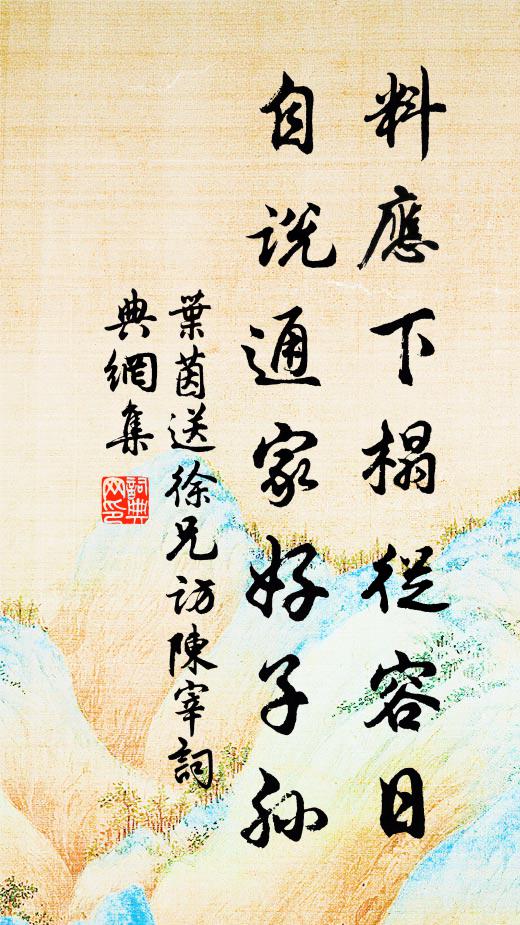 料應下榻從容日
自說通家好子孫
葉茵送徐兄訪陳宰詞
典網集
詞典網印